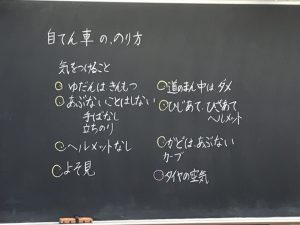 自てん車の、のり方
気をつけること
ゆだんはきんもつ
あぶないことはしない
手ばなし
立ちのり
ヘルメットなし
よそ見
道のまん中は ダメ
ひじあて、ひざあて
ヘルメット
かどは、あぶない
カーブ
タイヤの空気